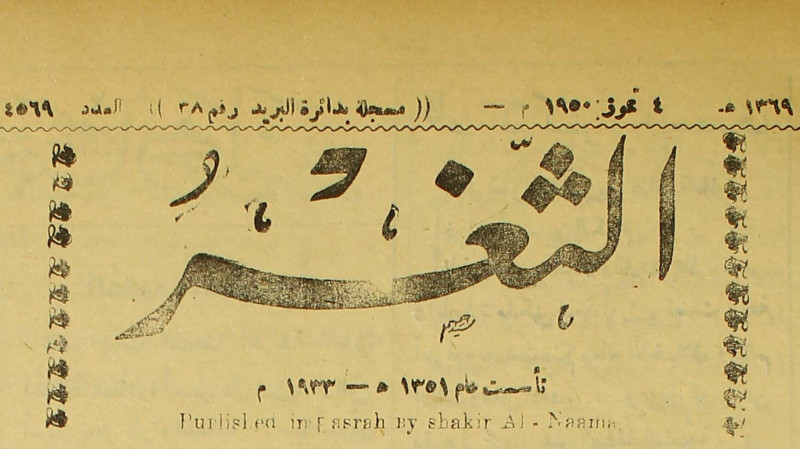 ١٣٦٩ هـ ٤ تموز ١٩٥٠ م — (( مسجلة بدائرة البريد رقم ٣٨ )) العدد ٤٥٦٩
الثغر
تأسست عام ١٣٥١ ه — ١٩٣٣ م
Published in Basrah By shakir Al - Naama